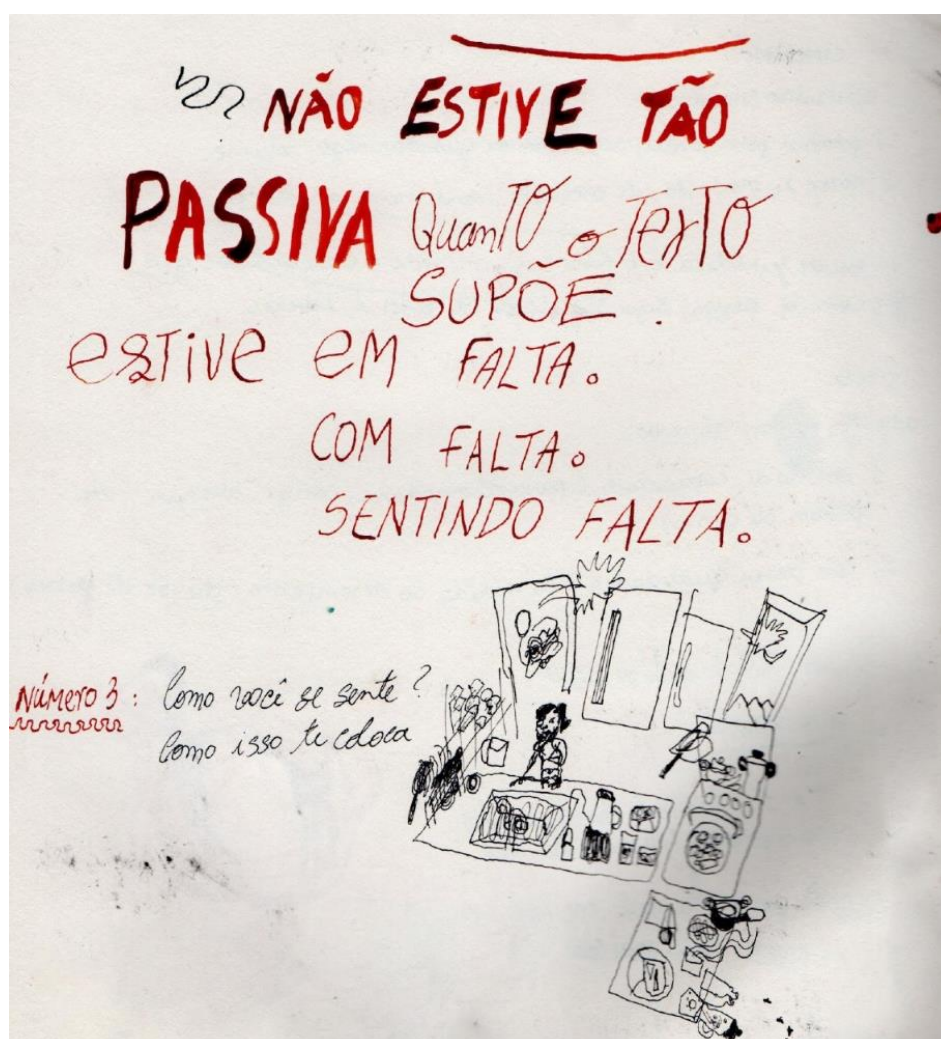 NÃO ESTIVE TÃO
PASSIVA QuanTO o TexTO
SUPÕE.
eSTive em FALTA.
COM FALTA.
SENTINDO FALTA.
Número 3: Como você se sente?
Como isso te coloca